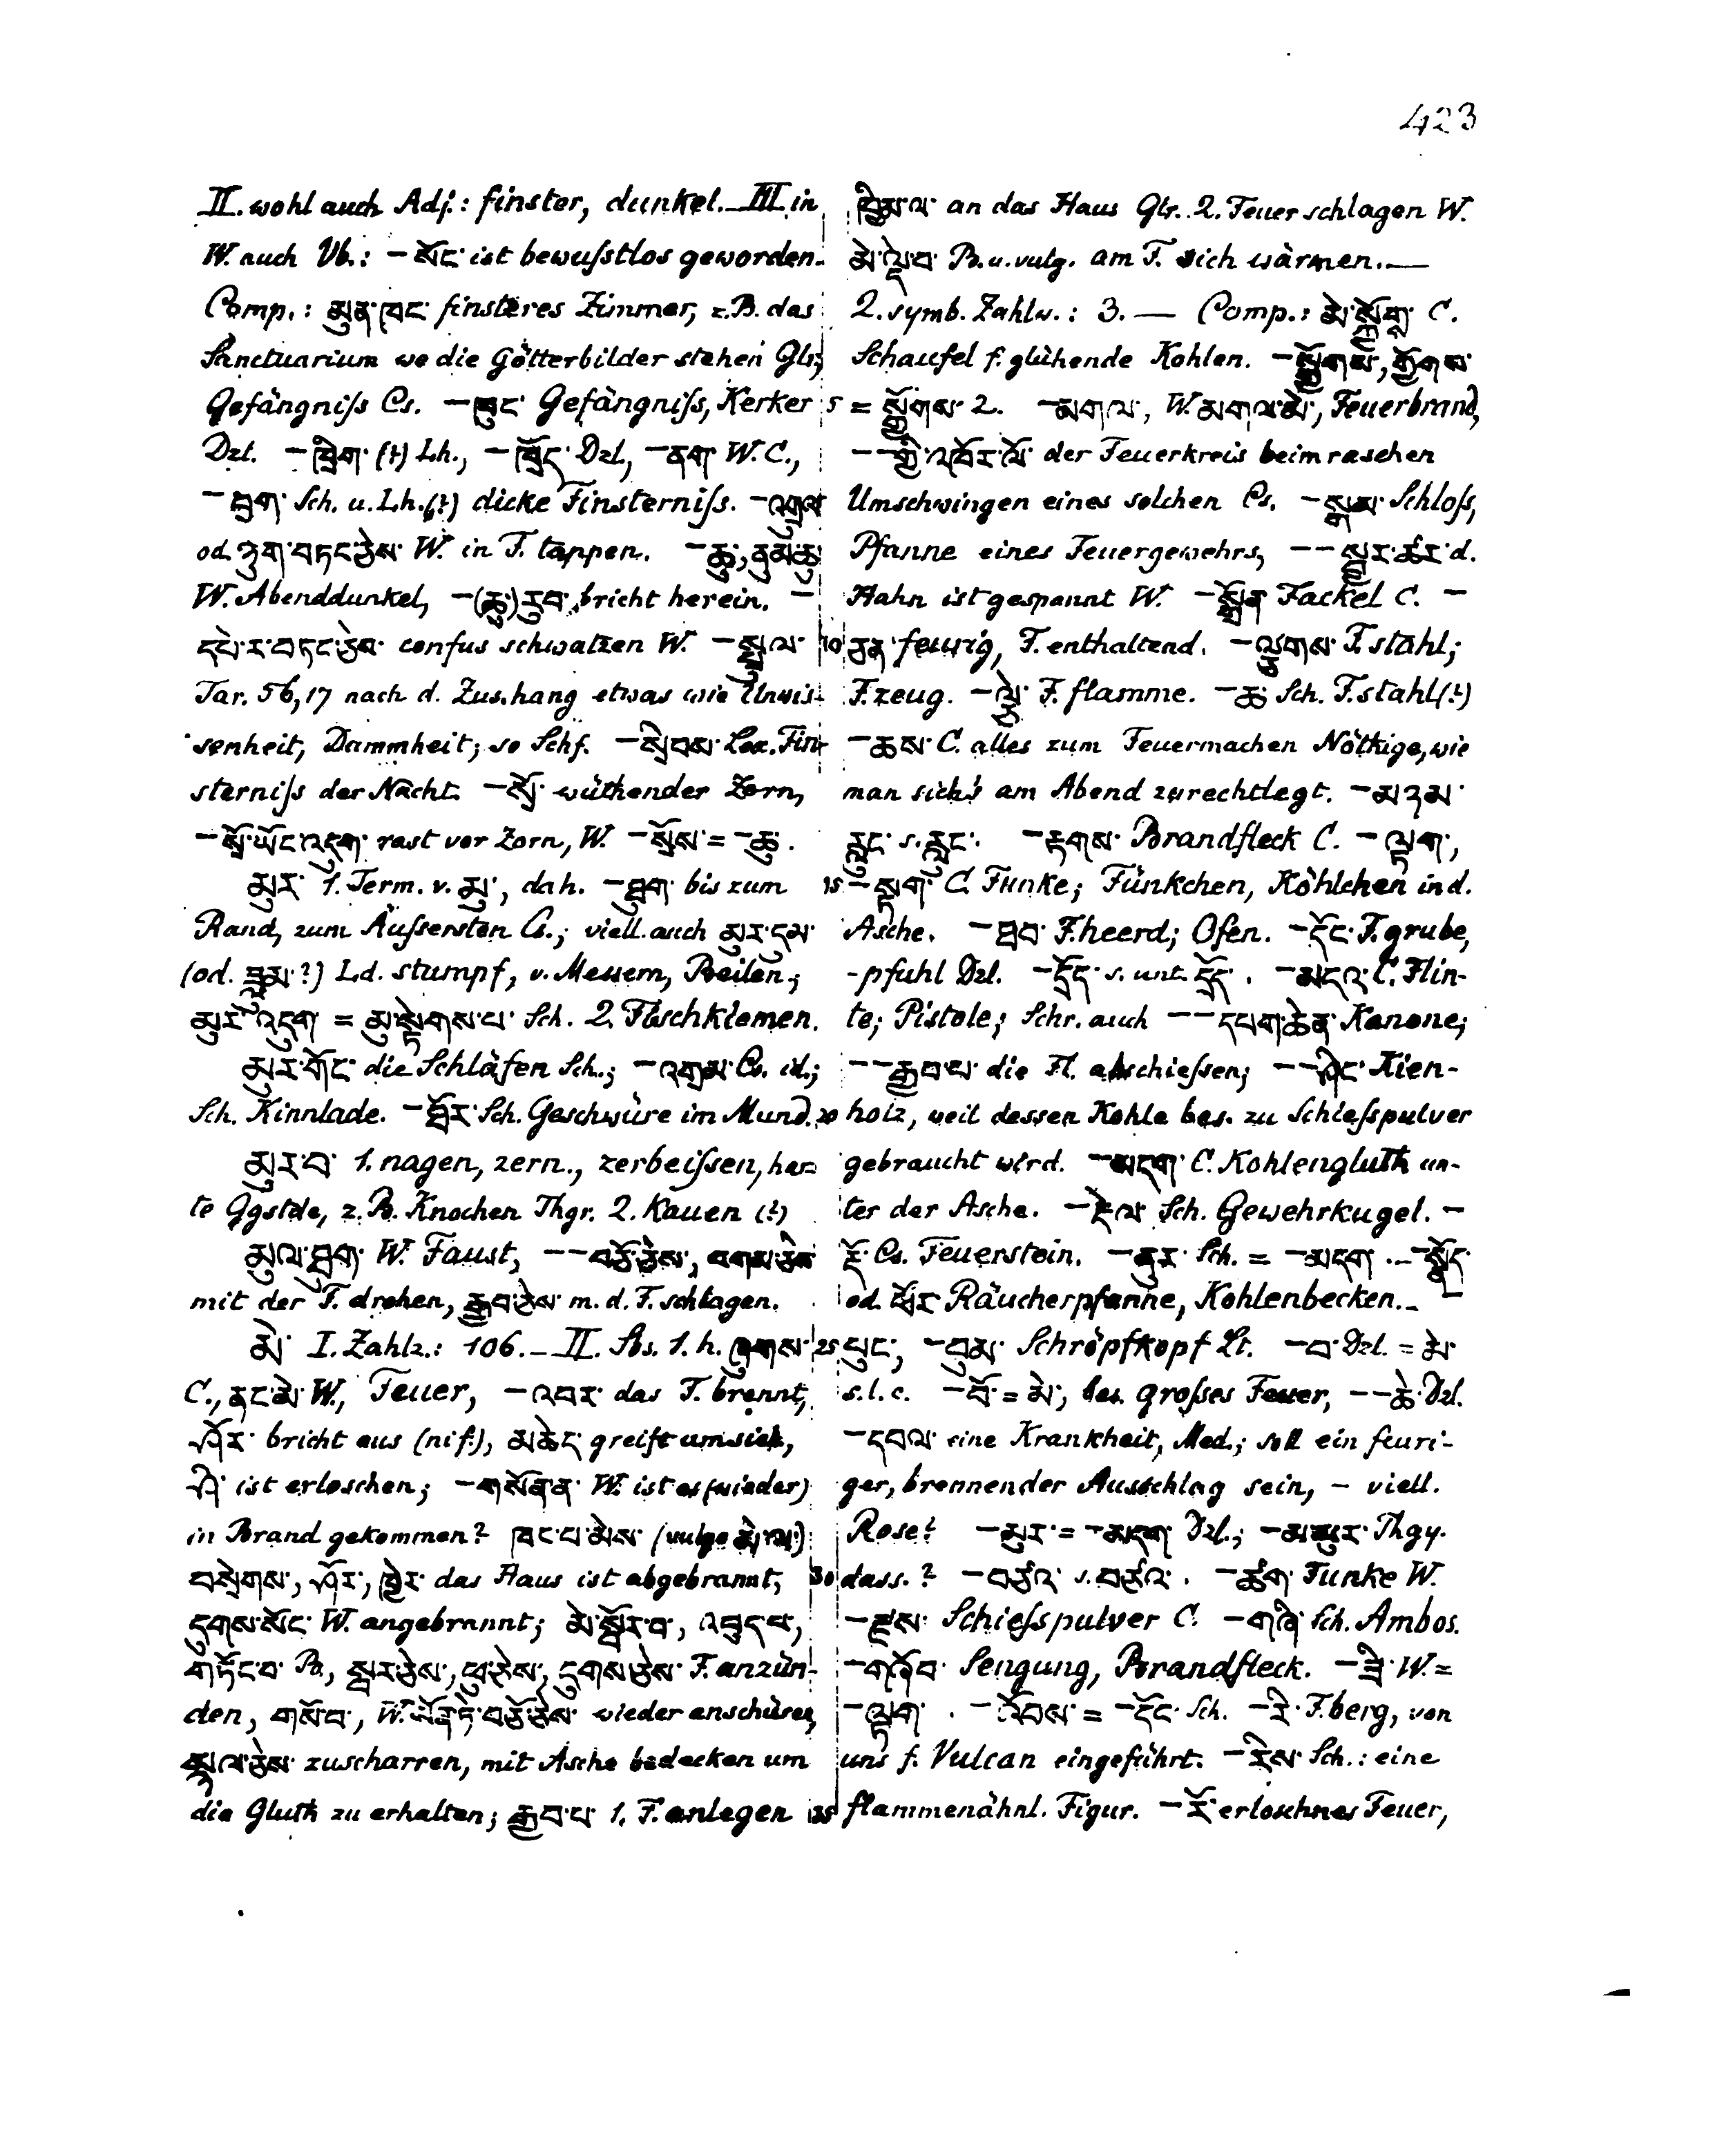 423
II. wohl auch Adj.: finster, dunkel. — III. in
W. auch Vb.: – སོང་ ist bewuſstlos geworden.
Comp.: མུན་ཁང་ finsteres Zimmer, z.B. das
Sanctuarium wo die Götterbilder stehen Glr.;
Gefängniſs Cs. – ཁུང་ Gefängniſs, Kerker
Dzl. – ཁྲིག་ (?) Lh., – ཁྲོད་ Dzl., – ནག་ W. C.,
– ཐག་ Sch. u. Lh. (?) dicke Finsterniſs. – འཕྲུལ་
od. ཉུག་བཏང་ཅེས་ W. in F. tappen. – ཆུ་,
W. Abenddunkel, – (ཆུ་) རུབ་ bricht herein. –
དཔེ་ར་བཏང་ཅེས་ confus schwatzen W. – སྤྲུལ་
Tar. 56, 17 nach d. Zus.hang etwas wie Unwis-
senheit, Dummheit; so Schf. – སྲིབས་ Lex. Fin-
sterniſs der Nacht. – སྲོ་ wüthender Zorn,
– སྲོ་ཡོང་འདུག་ rast vor Zorn, W. – སྲོས་ = – ཆུ་.
མུར་ 1. Term. v. མུ་, dah. – ཐུག་ bis zum
Rand, zum Äuſsersten Cs.; viell. auch མུར་དུམ་
(od. ?) Ld. stumpf, v. Messern, Beilen;
མུར་འདུག་ = མུ་སྟེགས་པ་ Sch. 2. Fischkiemen.
མུར་གོང་ die Schläfen Sch.; – འགྲམ་ Cs. id.;
Sch. Kinnlade. – ཐོར་ Sch. Geschwüre im Mund.
མུར་བ་ 1. nagen, zern., zerbeiſsen, har-
te Ggstde, z. B. Knochen Thgr. 2. Kauen (?)
མུལ་ཐུག་ W. Faust, – – བཅོ་ཅེས་,
mit der F. drohen, རྒྱབ་ཅེས་ m. d. F. schlagen.
མེ་ I. Zahlz.: 106. – II. Sbs. 1. h. ཞུགས་
C., ནང་མེ་ W., Feuer, – འབར་ das F. brennt,
ཤོར་ bricht aus (ni f.), མཆེད་ greift um sich,
ཤི་ ist erloschen; – གསོནན་ W. ist es (wieder)
in Brand gekommen? ཁང་པ་མེས་ (vulgo མེ་ལ་)
བསྲེགས་, ཤོར་, ཁྱེར་ das Haus ist abgebrannt,
དུགས་སོང་ W. angebrannt; མེ་སྤོར་བ་, འབུད་པ་,
གཏོང་བ་ B., སྤར་ཅེས་, ཕུ་ཅེས་, དུགས་ཅེས་ F. anzün-
den, གསོ་བ་, W. སོན་ཏེ་བཅོ་ཅེས་ wieder anschüren,
ཅེས་ zuscharren, mit Asche bedecken um
die Gluth zu erhalten; རྒྱབ་པ་ 1. F. anlegen
ཁྱིམ་ལ་ an das Haus Glr. 2. Feuer schlagen W.
མེ་ལྡེ་བ་ B. u. vulg. am F. sich wärmen. —
2. symb. Zahlw.: 3. — Comp.: མེ་སྐོགྲ་ C.
Schaufel f. glühende Kohlen. – སྐྱོགས་, ཀྱོགས་
5 = སྐྱོགས་ 2. – མགལ་, W. མགལ་མེ་, Feuerbrand,
– – གྱི་འཁོར་ལོ་ der Feuerkreis beim raschen
Umschwingen eines solchen Cs. – སྒམ་ Schloſs,
Pfanne eines Feuergewehrs, – – སྒྲར་ཚར་ d.
Hahn ist gespannt W. – སྒྲོན་ Fackel C. –
10 ཅན་ feurig, F. enthaltend. – ལྕགས་ F. stahl;
F. zeug. – ལྕེ་ F. flamme. – ཆ་ Sch. F. stahl (?)
– ཆས་ C. alles zum Feuermachen Nöthige, wie
man sich's am Abend zurechtlegt. – མ་
རླུང་ s. རླུང་. – རྟགས་ Brandfleck C. – ལྟག་,
15 – སྟག་ C. Funke; Fünkchen, Köhlchen in d.
Asche. – ཐབ་ F.heerd; Ofen. – དོང་ F. grube,
-pfuhl Dzl. – དྲོད་ s. unt. དྲོད་. – མདའ་ C. Flin-
te; Pistole; Schr. auch – – དཔག་ཆེན་ Kanone;
– – རྒྱབ་པ་ die Fl. abschieſsen; – – ཤིང་ Kien-
20 holz, weil dessen Kohle bes. zu Schieſspulver
gebraucht wird. – མདག་ C. Kohlengluth un-
ter der Asche. – རྡེལ་ Sch. Gewehrkugel. –
རྡོ་ Cs. Feuerstein. – ནུར་ Sch. = – མདག་. – སྣོད་
od. ཕོར་ Räucherpfanne, Kohlenbecken. –
25 པུང་, – བུམ་ Schröpfkopf Lt. – བ་ Dzl. = མེ་
s. l. c. – བོ་ = མེ་, bes. groſses Feuer, – – ཆེ་ Dzl.
– དབལ་ eine Krankheit, Med.; soll ein feuri-
ger, brennender Ausschlag sein, – viell.
Rose? – མུར་ = – མདག་ Dzl.; – མ་མུར་ Thgy.
30 dass.? – བཙའ་ s. བཙའ་. – ཚག་ Funke W.
– རྫས་ Schieſspulver C. – གཞི་ Sch. Ambos.
– གཞོབ་ Sengung, Brandfleck. – ཟི་ W. =
– ལྟག་. – འོབས་ = – དོང་ Sch. – རི་ F.berg, von
uns f. Vulcan eingeführt. – རིས་ Sch.: eine
35 flammenähnl. Figur. – རོ་ erloschnes Feuer,